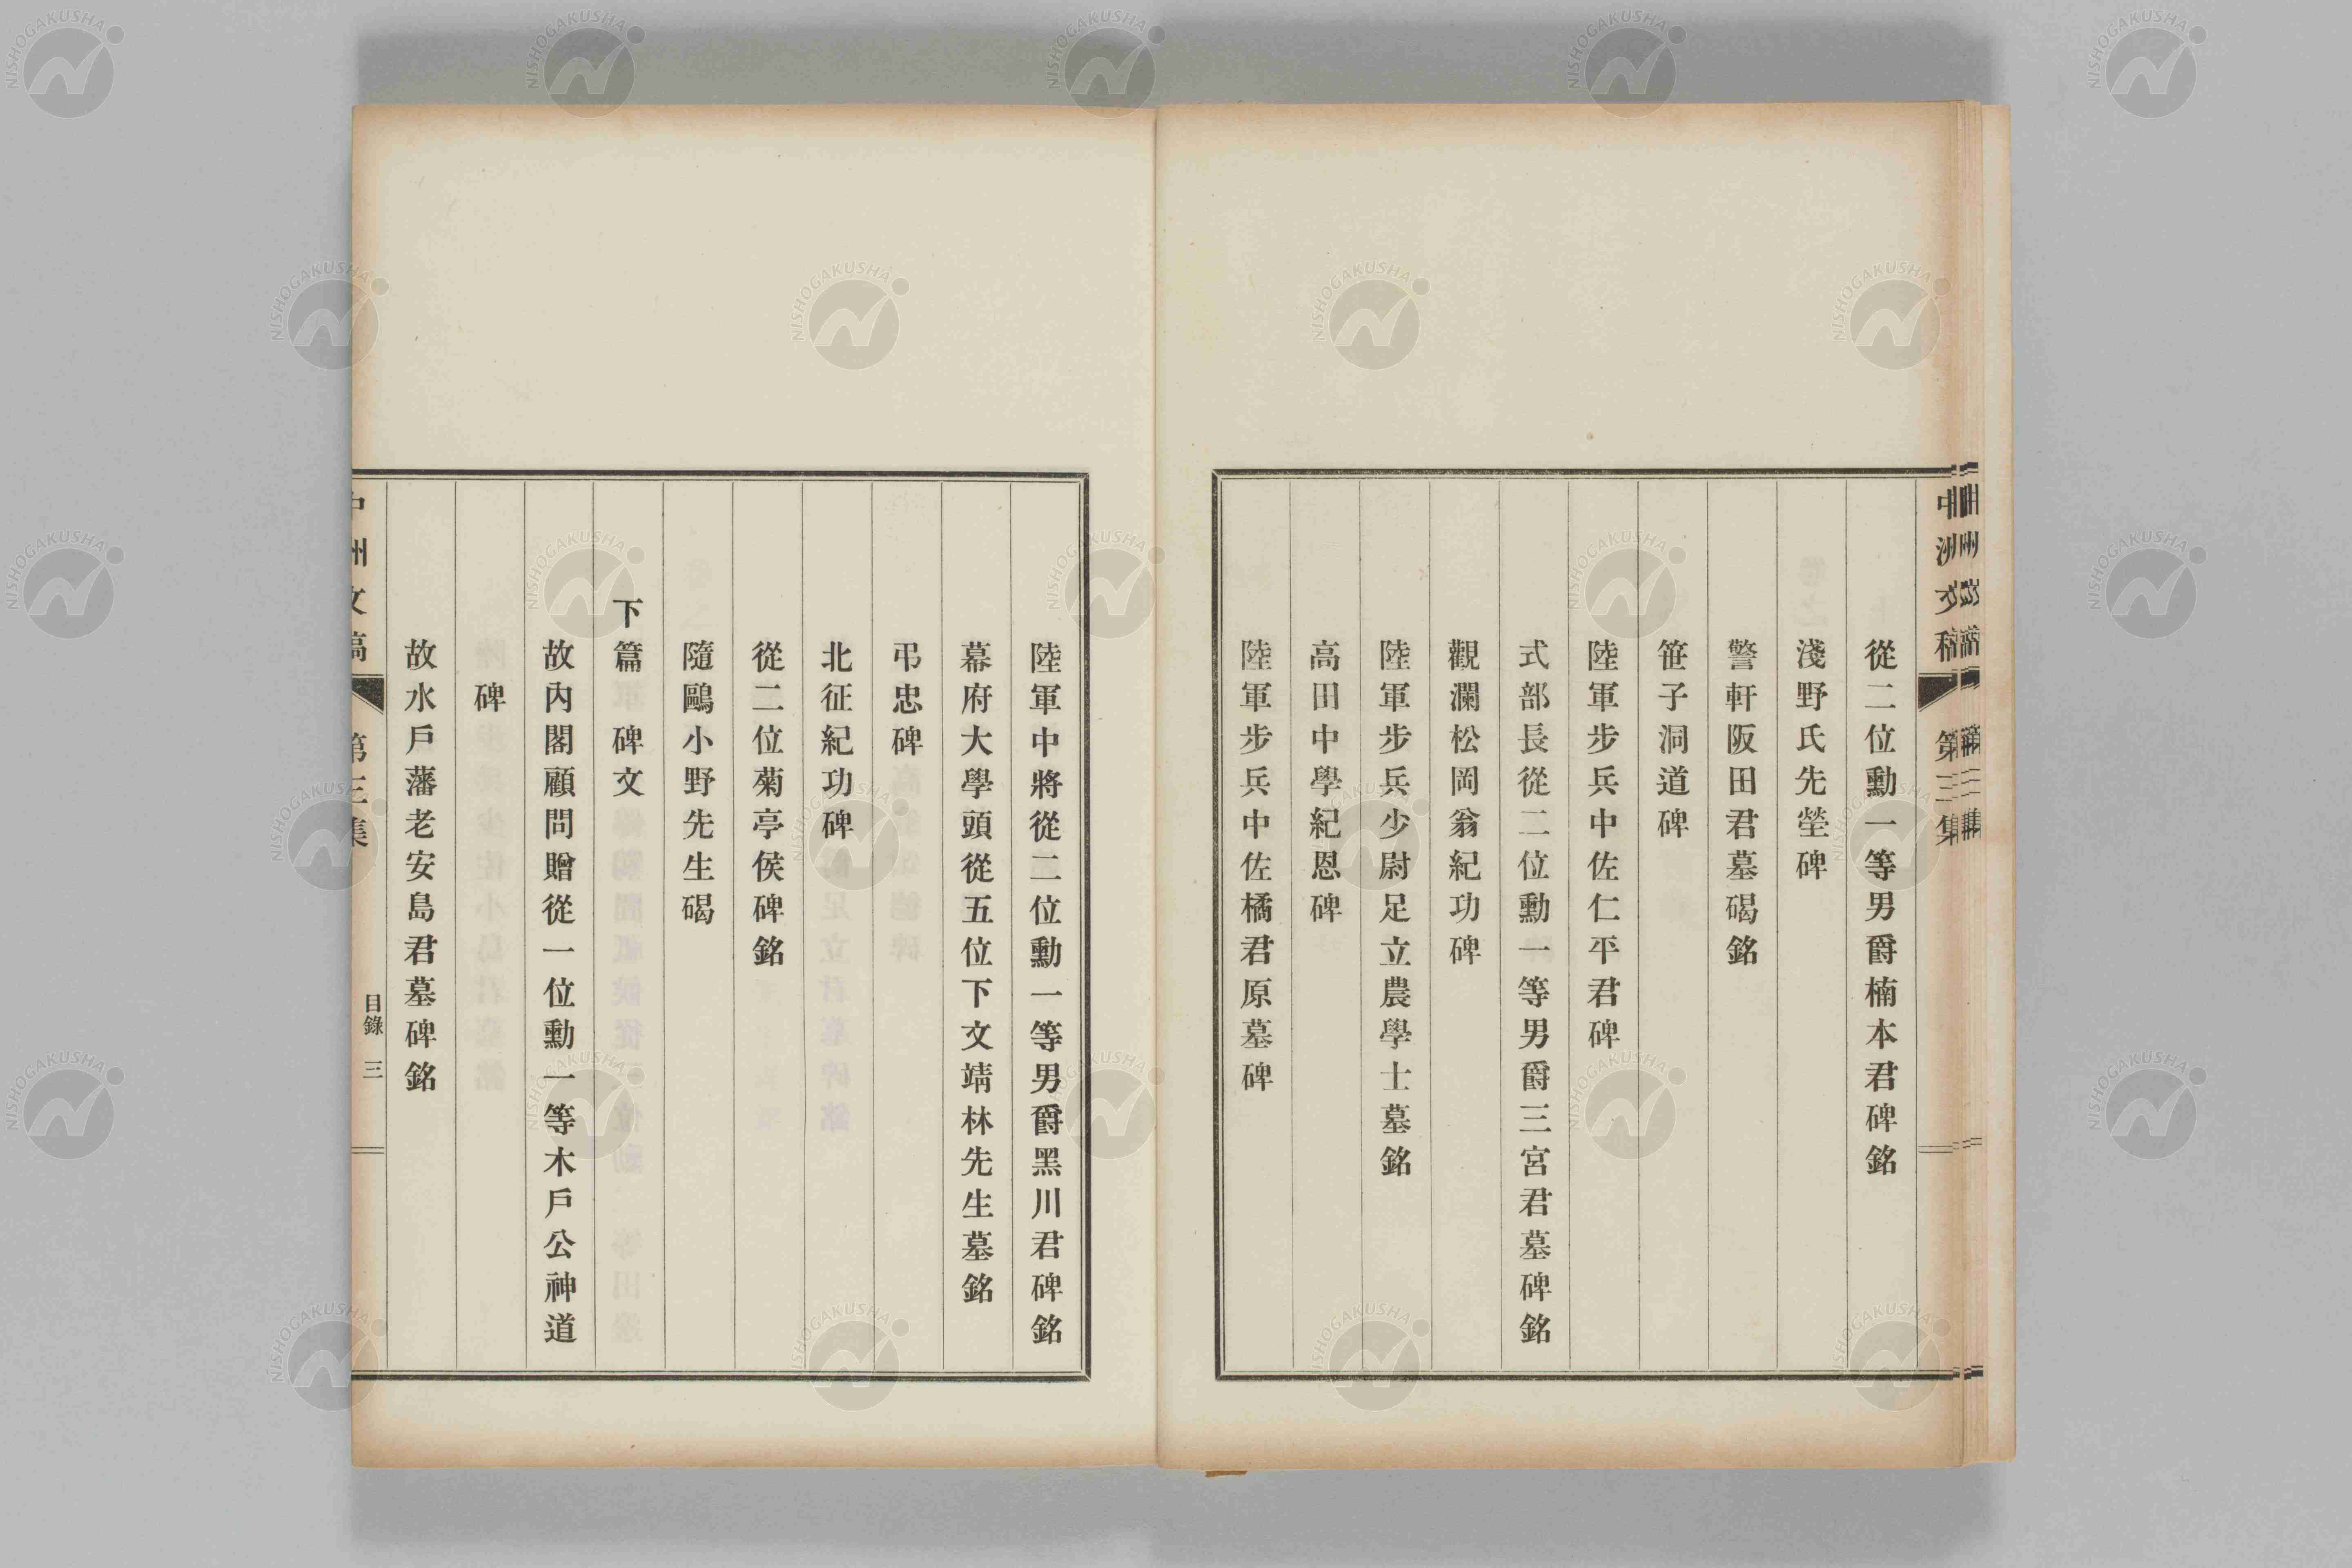 中洲文稿 第三集
從二位勳一等男爵楠本君碑銘
淺野氏先塋碑
警軒阪田君墓碣銘
笹子洞道碑
陸軍步兵中佐仁平君碑
式部長從二位勳一等男爵三宮君墓碑銘
觀瀾松岡翁紀功碑
陸軍步兵少尉足立農學士墓銘
高田中學紀恩碑
陸軍步兵中佐橘君原墓碑
陸軍中將從二位勳一等男爵黑川君碑銘
幕府大學頭從五位下文靖林先生墓銘
弔忠碑
北征紀功碑
從二位菊亭侯碑銘
隨鷗小野先生碣
下篇 碑文
故內閣顧問贈從一位勳一等木戶公神道
碑
故水戶藩老安島君墓碑銘
中洲文稿 第三集 目錄 三
NISHOGAKUSHA